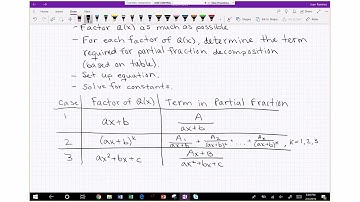 - Factor Q(x) as much as possible
- For each factor of Q(x), determine the term
required for partial fraction decomposition
(based on table).
- Set up equation.
- Solve for constants.
Case | Factor of Q(x) | Term in Partial Fraction
1 | ax+b | A/(ax+b)
2 | (ax+b)^k | A₁/(ax+b) + A₂/(ax+b)² + ... + Aₖ/(ax+b)^k, k=1,2,3
3 | ax²+bx+c | (Ax+B)/(ax²+bx+c)